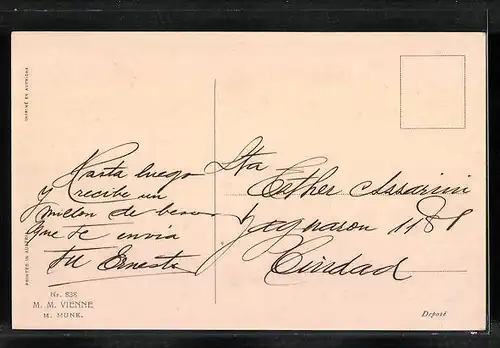 IMPRIMÉ EN AUTRICHE
Hasta luego
y recibe un
millon de besos
que te envia
tu Ernesto
Sta
Esther Assarini
Yaguaron 1181
Ciudad
PRINTED IN AUSTRIA
Nr. 838
M. M. VIENNE
M. MUNK.
Déposé